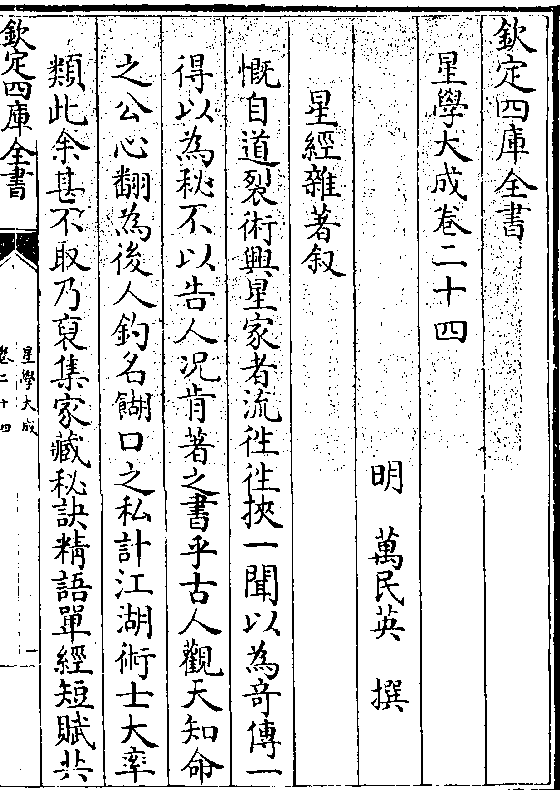 欽定四庫全書
星學大成卷二十四
明 萬民英 撰
星經雜著叙
慨自道裂術興星家者流徃徃挾一聞以為竒傳一
得以為秘不以告人况肯著之書乎古人觀天知命
之公心翻為後人釣名餬口之私計江湖術士大率
類此余甚不取乃裒集家藏秘訣精語單經短賦共
欽定四庫全書
星學大成
卷二十四
一